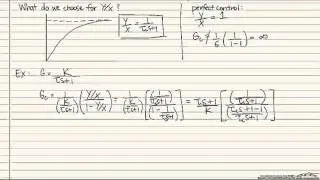 What do we choose for Y/X?
Y/X = 1/(τcs+1)
perfect control:
Y/X = 1
Gc ≠ 1/G (1/(1-1)) = ∞
Ex: G = K/(τs+1)
Gc = 1/(K/(τs+1)) ((Y/X)/(1-Y/X)) = 1/(K/(τs+1)) [(1/(τcs+1))/(1-1/(τcs+1))] = (τs+1)/K [(1/(τcs+1))/((τcs+1-1)/(τcs+1))]